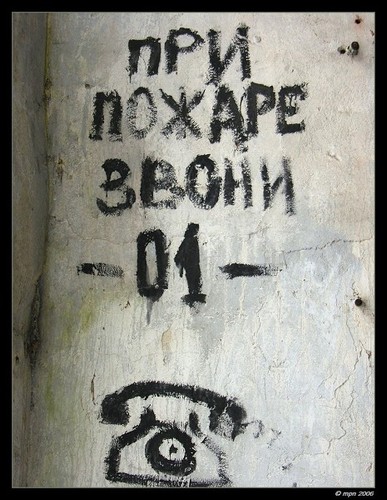 ПРИ
ПОЖАРЕ
ЗВОНИ
-01-
© mpn 2006